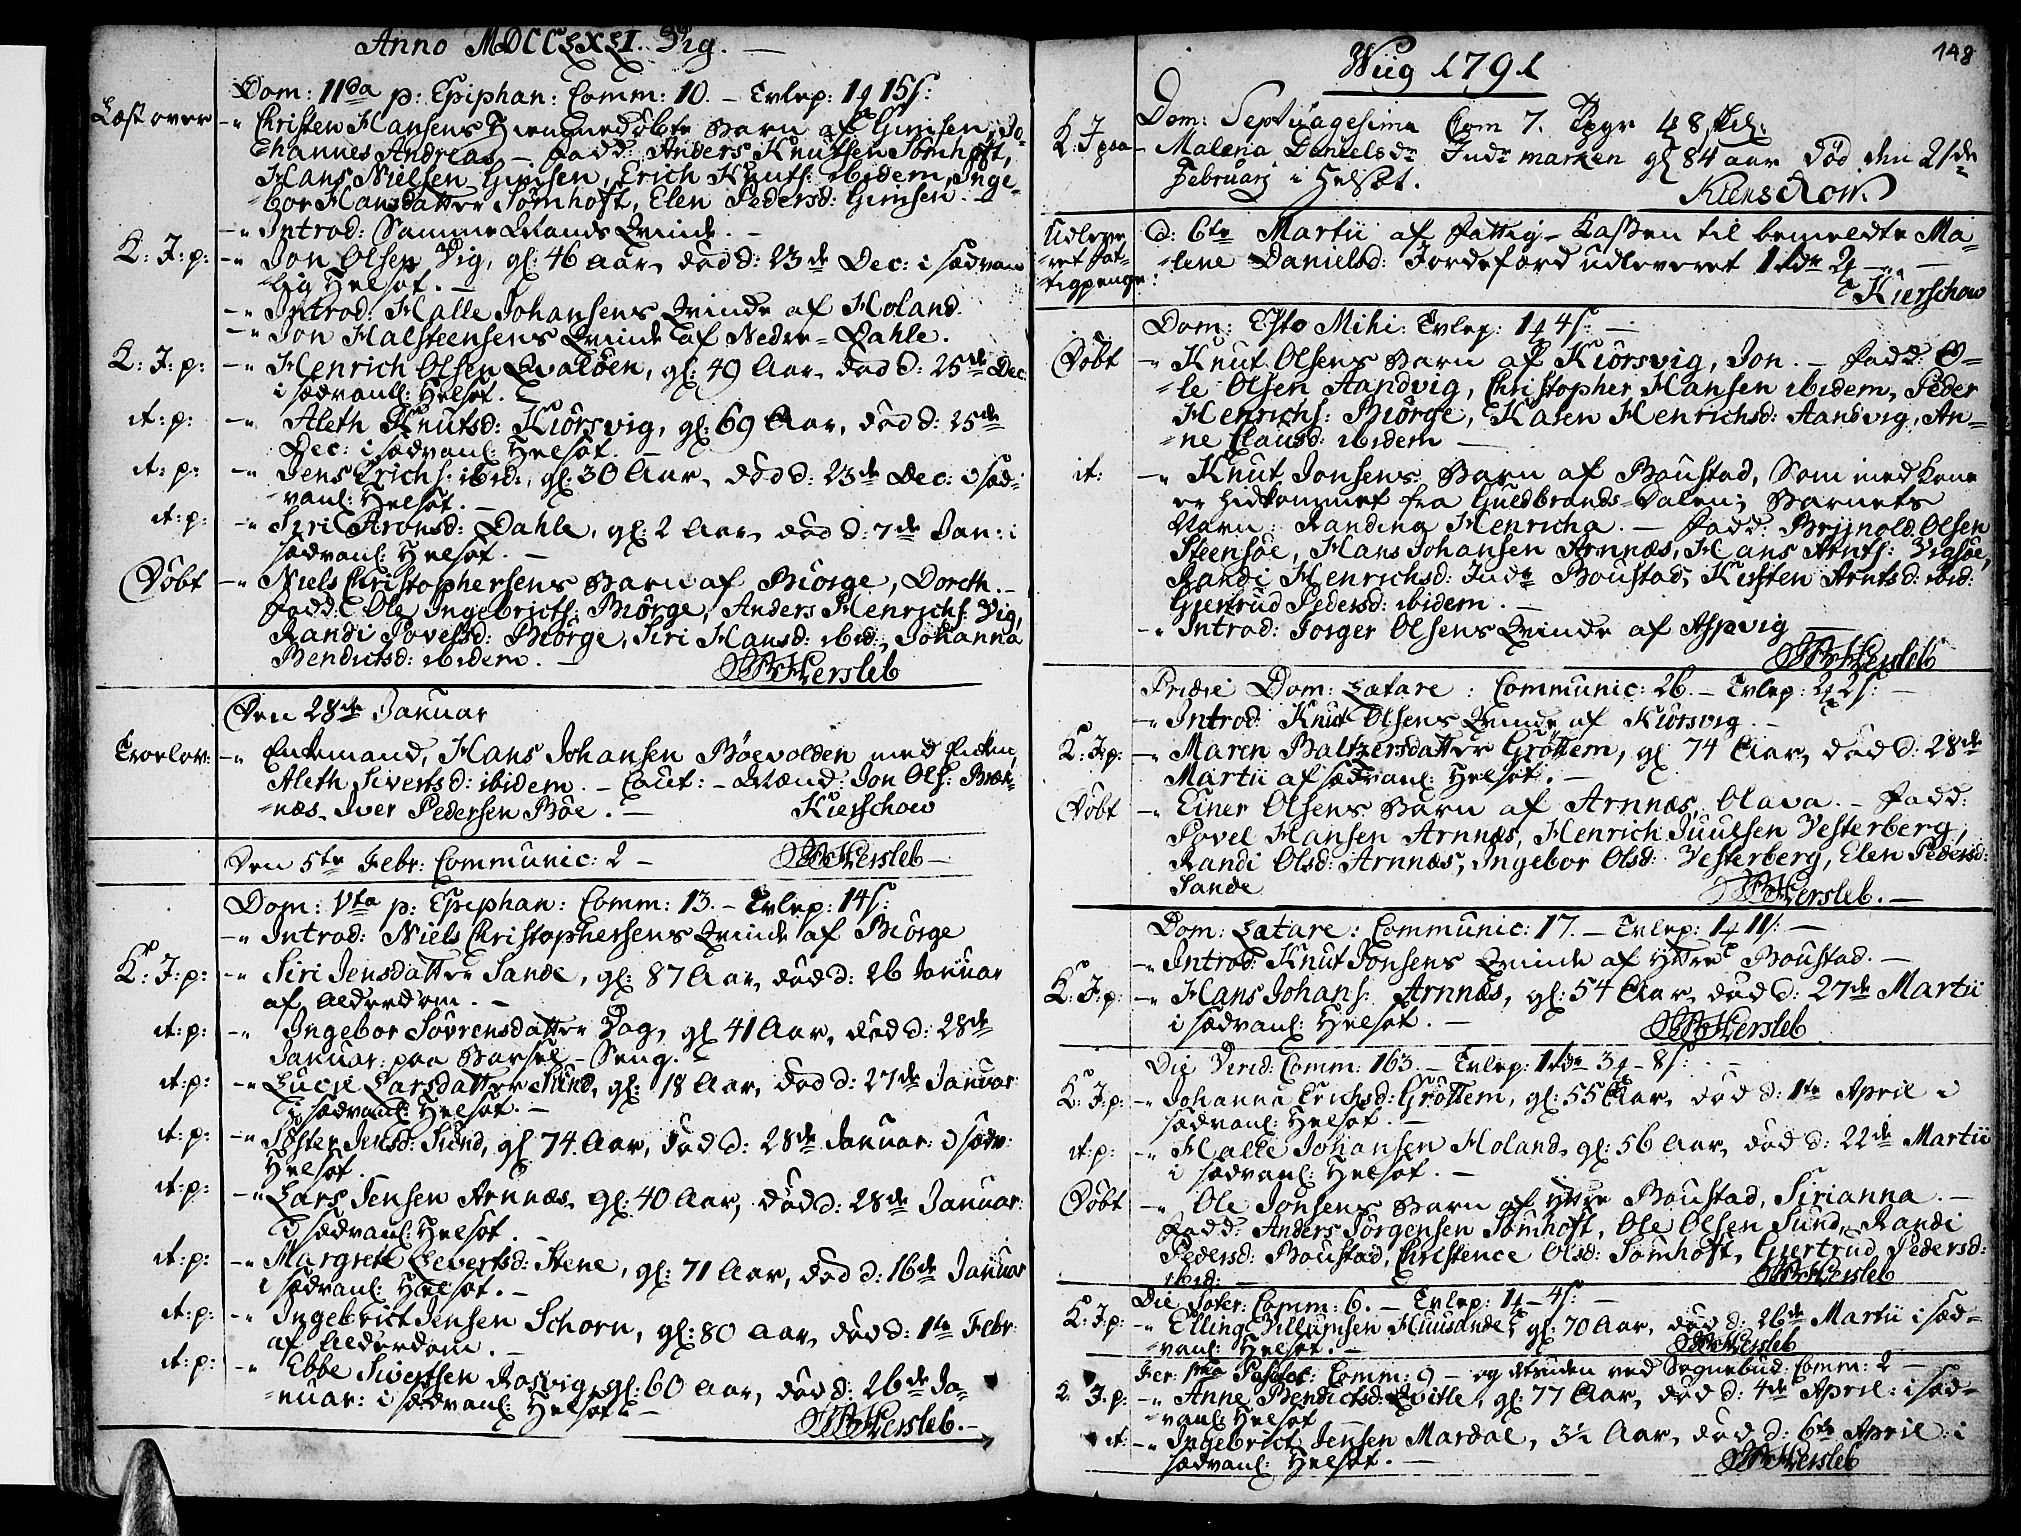 Anno MDCCLXXXXI. Vig.
Dom: IIda p: Epiphan: Comm: 10. – Evlep: 1 15 s:
Læst over -"- Christen Hansens hiemmedøbte Barn af Gimsen, Jo-
hannes Andreas – Fadd: Anders Knutsen Sømhoft,
Hans Nielsen Gimsen, Erich Knuts: ibidem, Inge-
bor Hansdatter Sømhoft, Elen Pedersd: Gimsen. –
-"- Introd: Samme Mands Qvinde. –
K: J: p: -"- Jon Olsen Vig, gl: 46 Aar, død d: 23de Dec: i sædvan-
lig Helsot. –
-"- Introd: Halle Johansens Qvinde af Holand
-"- Jon Halsteensens Qvinde af Nedre-Dahle.
K: J: p: -"- Henrich Olsen Qvaløen, gl: 49 Aar, død d: 25de Dec
i sædvanl: Helsot.
it: p: -"- Aleth Knutsd: Kiørsvig, gl: 69 Aar, død d: 25de
Dec: i sædvanl: Helsot. –
it: p: -"- Jens Erichs: ibid:, gl: 30 Aar, død d: 23de Dec: i sæd-
vanl: Helsot. –
it: p: -"- Siri Aronsd: Dahle, gl: 2 Aar, død d: 7de Jan: i
sædvanl: Helsot. –
Døbt -"- Niels Christophersens Barn af Biørge, Doreth. –
Fadd: Ole Ingebricts: Biørge, Anders Henrichs: Vig,
Randi Povelsd: Biørge, Siri Hansd: ibid:, Johanna
Bendictsd: ibidem. – Hersleb
Den 28de Januar
Troelov: -"- Enkemand, Hans Johansen Bøevolden med Enken,
Aleth Sivertsd: ibidem. – Caut: – Mænd: Jon Ols: Bræk-
næs, Iver Pedersen Bøe. – Kierschow
Den 5te Febr: Communic: 2 – Hersleb –
Dom: Vta p: Epiphan: Comm: 13. – Evlep: 14 s:
-"- Introd: Niels Christophersens Qvinde af Biørge
K: J: p: -"- Siri Jensdatter Sande, gl: 87 Aar, død d: 26 Januar
af Alderdom. –
it: p: -"- Ingebor Sørrensdatter Dag, gl 41 Aar, død d: 28de
Januar: paa Barsel-Seng.
it: p: -"- Lucie Larsdatter Sund, gl: 18 Aar, død d: 27de Januar:
i sædvanl: Helsot. –
it: p: -"- Søster Jensd: Sund, gl 74 Aar, død d: 28de Januar: i sædv:
Helsot.
it: p: -"- Lars Jensen Arnnæs, gl: 40 Aar, død d: 28de Januar:
i sædvanl: Helsot. –
it: p: -"- Margrete Severtsd: Stene, gl: 71 Aar, død d: 16de Januar
i sædvanl: Helsot. –
it: p: -"- Ingebrict Jensen Schorn, gl: 80 Aar, død d: 1te Febr:
af Alderdom. –
it: p: -"- Ebbe Sivertsen Rosvig, gl: 60 Aar, død d: 26de Ja-
nuar: i sædvanl: Helsot –
Hersleb. –
148
Wiig 1791
Dom: Septuagesima Com 7. 48 skil:
K: J psa – Malena Danielsdr Indr marken gl 84 aar død den 21de
Februarj i Helsot.
Kierschow
Udleve- d: 6te Martii af Fattig-Kassen til bemeldte Ma-
ret Fat- lene Danielsd: Jordefærd udleveret 1 rdr 2
tigpenge: Kierschow
Dom: Esto Mihi: Evlep: 1 4 s: –
Døbt -"- Knut Olsens Barn af Kiørsvig, Jon. – Fadd: O-
le Olsen Aandvig, Christopher Hansen ibidem, Peder
Henrichs: Biørge, Karen Henrichsd: Aandvig, An-
ne Clausd: ibidem –
it: -"- Knut Jonsens Barn af Boustad, som med Kone
er hidkommet fra Guldbrands-Dalen; Barnets
Navn: Randina Henricha. – Fadd: Brijnold Olsen
Steensøe, Hans Johansen Arnnæs, Hans Arnts: Vigsøe,
Randi Henrichsd: Indr Boustad, Kirsten Arntsd: ibid:
Giertrud Pedersd: ibidem. –
-"- Introd: Jørger Olsens Qvinde af Aspvig –
Hersleb
Pridie Dom: Lætare: Communic: 26. – Evlep: 2 2 s: –
-"- Introd: Knut Olsens Qvinde af Kiørsvig. –
K: J: p: -"- Maren Baltzersdatter Grøttem, gl 74 Aar, død d: 28de
Martii af sædvanl: Helsot. –
Døbt -"- Einer Olsens Barn af Arnnæs, Olava. – Fadd:
Povel Hansen Arnnæs, Henrich Juulsen Vesterberg,
Randi Olsd: Arnnæs, Ingebor Olsd: Vesterberg, Elen Pedersd:
Sande Hersleb. –
Dom: Lætare: Communic: 17. – Evlep: 1 11 s: –
-"- Introd: Knut Jonsens Qvinde af Yttre Boustad. –
K: J: p: -"- Hans Johans: Arnnæs, gl: 54 Aar, død d: 27de Martii
i sædvanl: Helsot. – Hersleb
Die Virid: Comm: 163. – Evlep: 1 rdr 3 – 8 s: –
K: J: p: -"- Johanna Erichsd: Grøttem, gl: 55 Aar, død d: 1te April i
sædvanl: Helsot. –
it: p: -"- Halle Johansen Holand, gl: 56 Aar, død d: 22de Martii
i sædvanl: Helsot. –
Døbt -"- Ole Jonsens Barn af Yttre Boustad, Sirianna. –
Fadd: Anders Jørgensen Sømhoft, Ole Olsen Sund, Randi
Pedersd: Boustad, Christence Olsd: Sømhoft, Giertrud Pedersd:
ibid: – Hersleb
Die Soter: Comm: 6. – Evlep: 1 – 4 s: –
K: J: p: -"- Elling Villumsen Huusende, gl: 70 Aar, død d: 26de Martii i sæd-
vanl: Helsot. – Hersleb
Fer: 1ma Paschat: Comm: 9 – og desuden ved Sognebud: Comm: 2 –
K: J: p: -"- Anne Bendictsd: Qvitle, gl: 77 Aar, død d: 4de April: i sæd-
vanl: Helsot –
it: -"- Ingebrict Jensen Mardal, 3½ Aar, død d: 6te April i
sædvanl: Helsot. – Hersleb